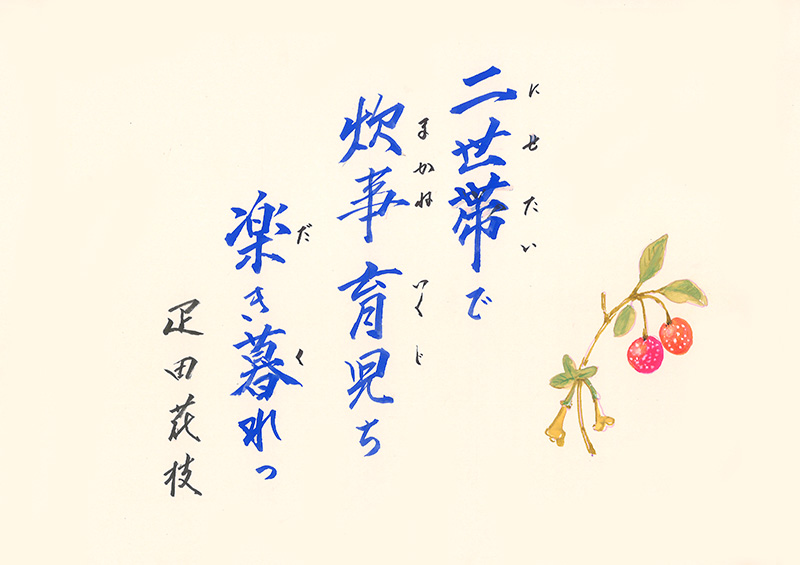 二世帯で
にせたい
炊事育児ち
まかね いくじ
楽き暮れっ
だ く
疋田花枝